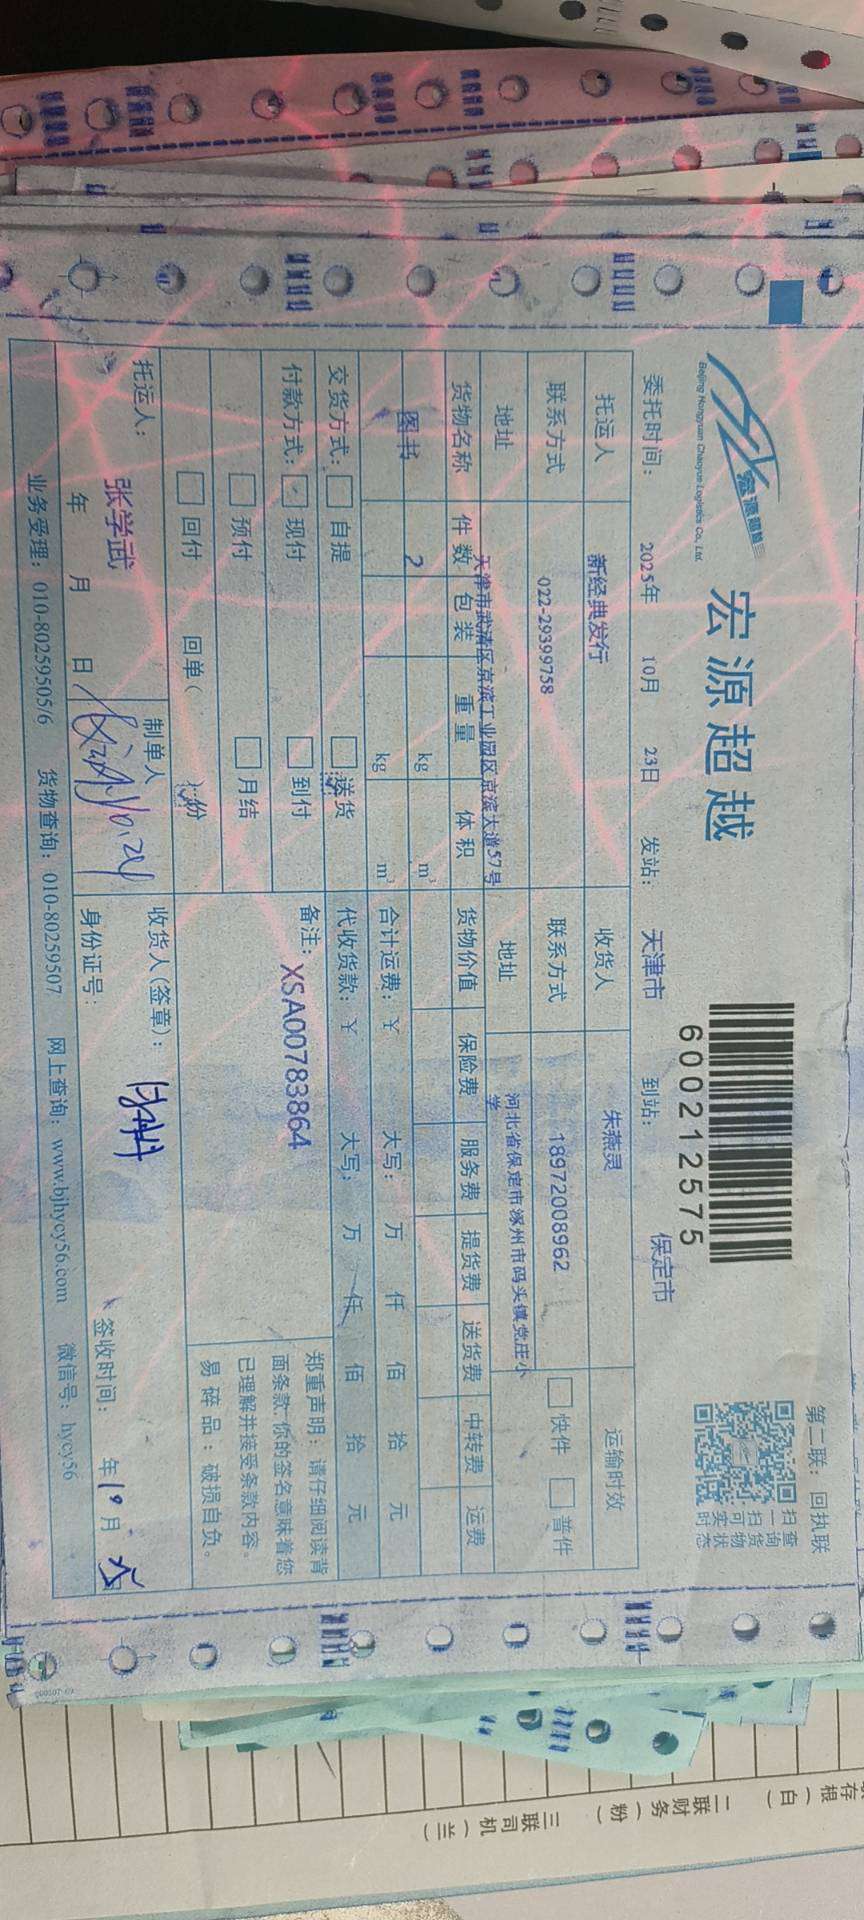 宏源超越
Beijing Hongyuan Chaoyue Logistics Co., Ltd.
宏源超越
600212575
第二联：回执联
扫一扫可实时
查询货物状态
委托时间： 2025年 10月 23日 发站： 天津市 到站： 保定市
托运人 新经典发行 收货人 朱燕灵 运输时效
联系方式 022-29399758 联系方式 18972008962 快件 普件
地址 天津市武清区京滨工业园区京滨大道57号 地址 河北省保定市涿州市码头镇党庄小学
货物名称 件数 包装 重量 体积 货物价值 保险费 服务费 提货费 送货费 中转费 运费
图书 2 kg m³
kg m³ 合计运费：￥ 大写： 万 仟 佰 拾 元
交货方式： 自提 送货 代收货款：￥ 大写： 万 仟 佰 拾 元
付款方式： 现付 到付 备注： XSA00783864
预付 月结
回付 回单（ 份
郑重声明：请仔细阅读背
面条款，你的签名意味着您
已理解并接受条款内容。
易碎品：破损自负。
托运人： 张学武 制单人 收货人(签章)：
年 月 日 身份证号： 签收时间： 年 10 月
业务受理：010-80259505/6 货物查询：010-80259507 网上查询：www.bjhycy56.com 微信号：hycy56
存根（白）
二联财务（粉）
三联司机（兰）